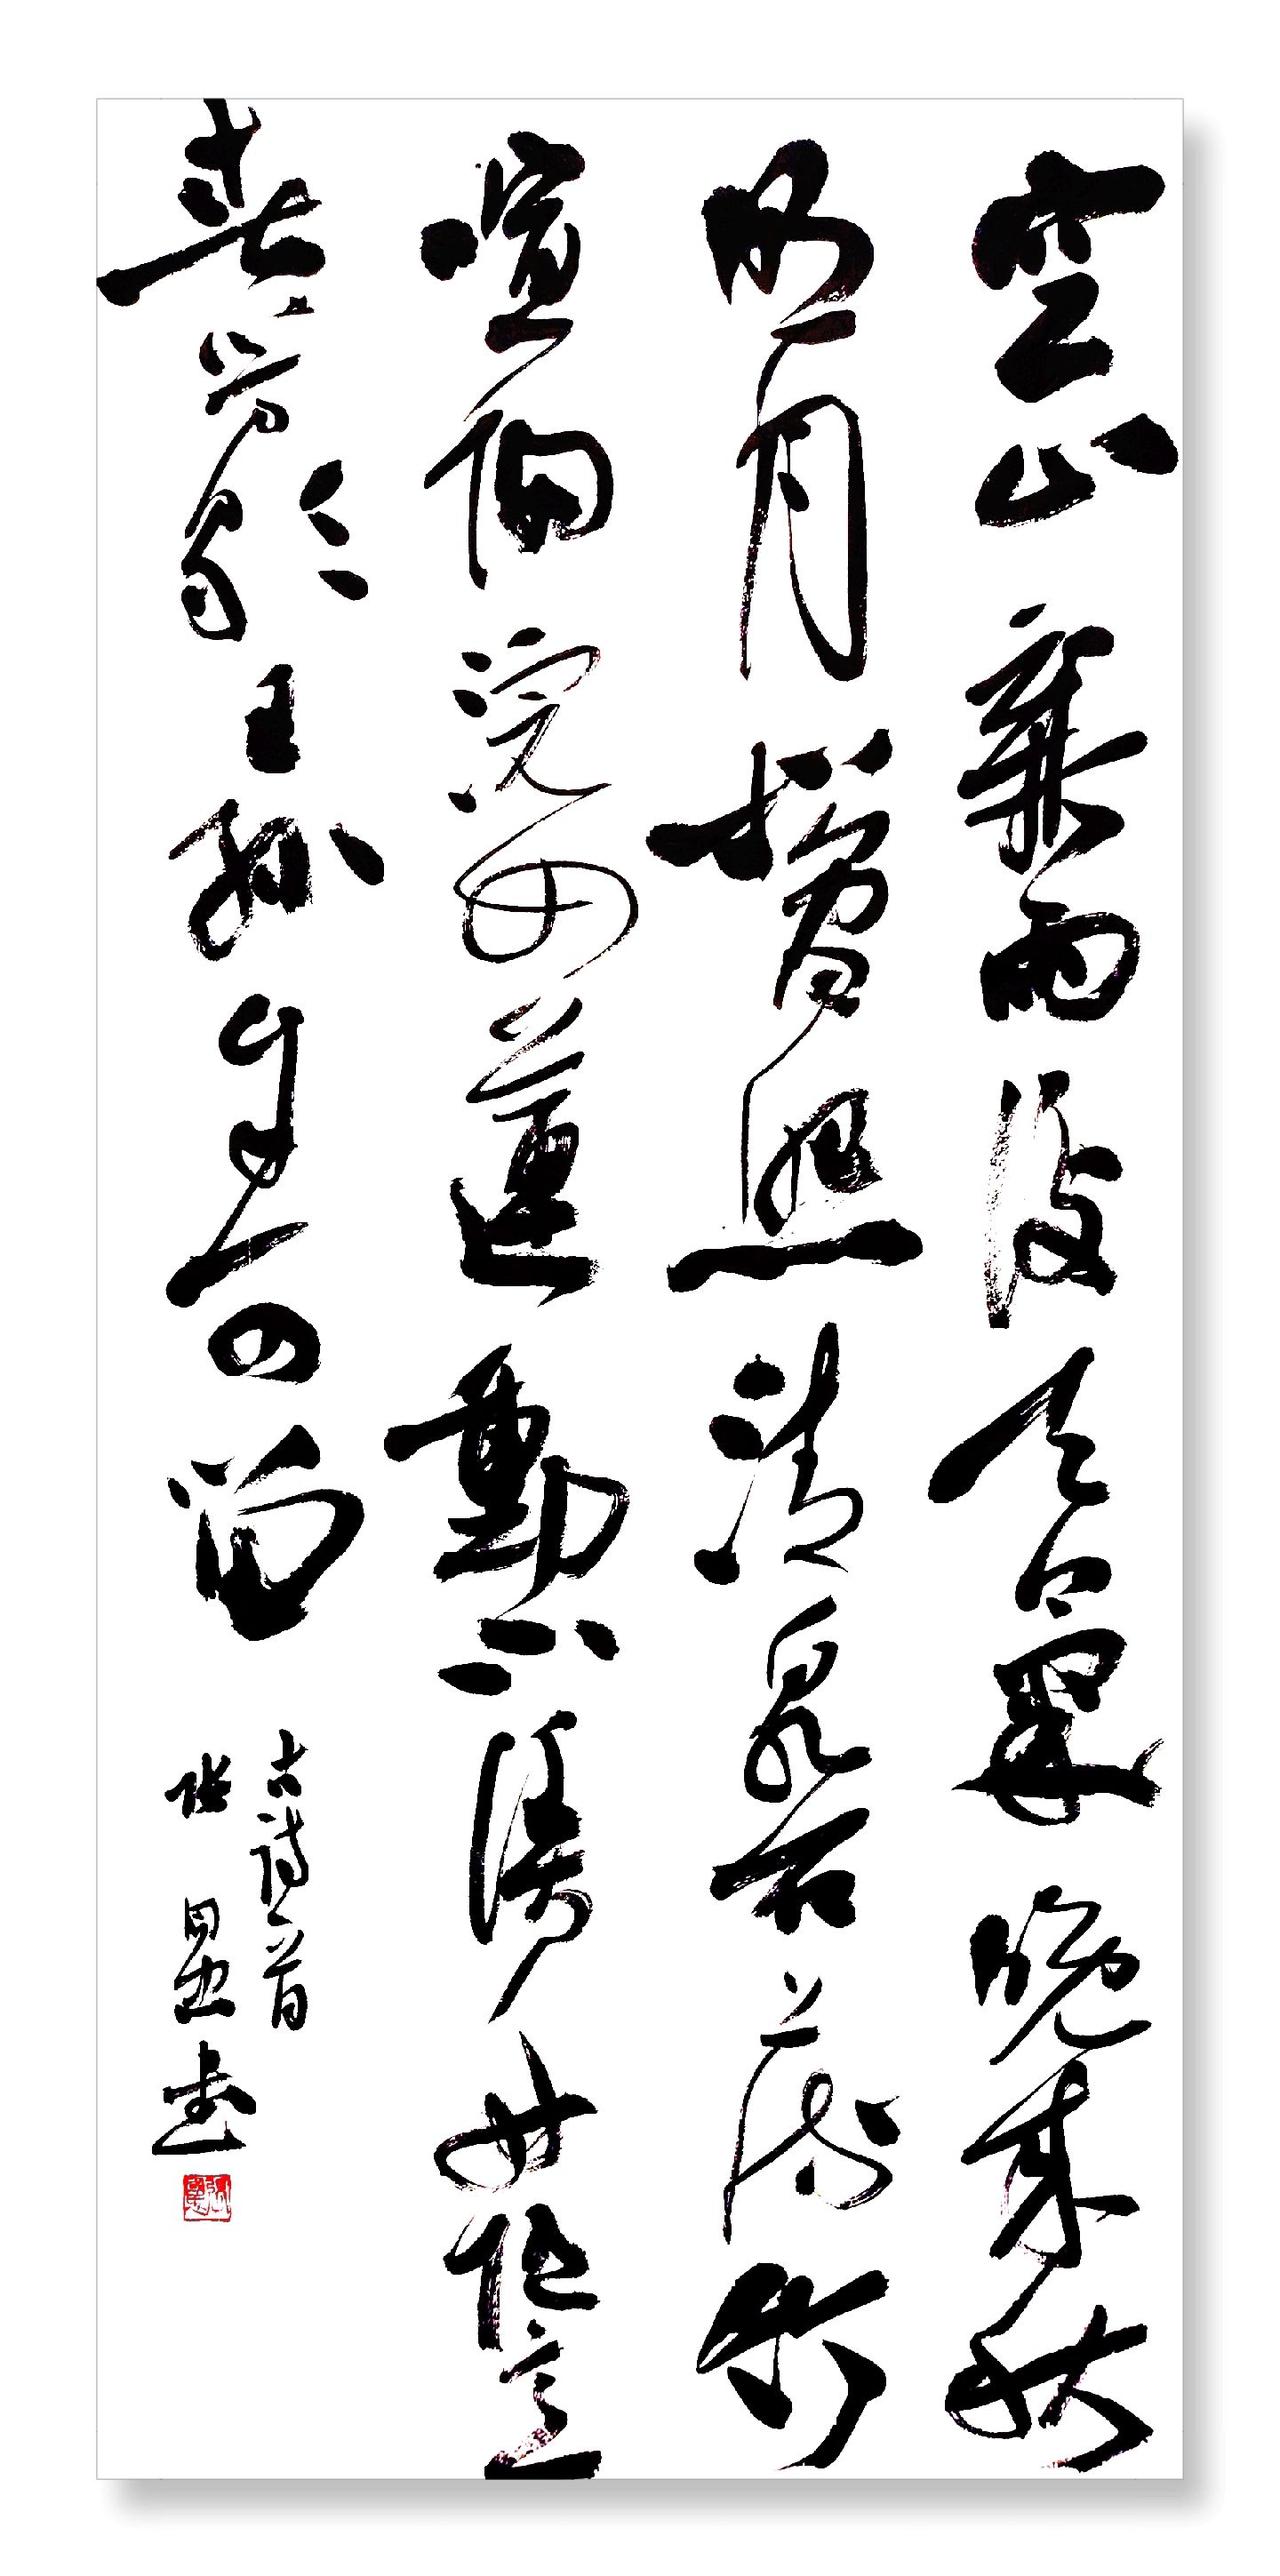 空山新雨後天氣晚來秋
明月松間照清泉石上流竹
喧歸浣女蓮動下漁舟隨意
春芳歇王孫自可留
古詩一首
張显書